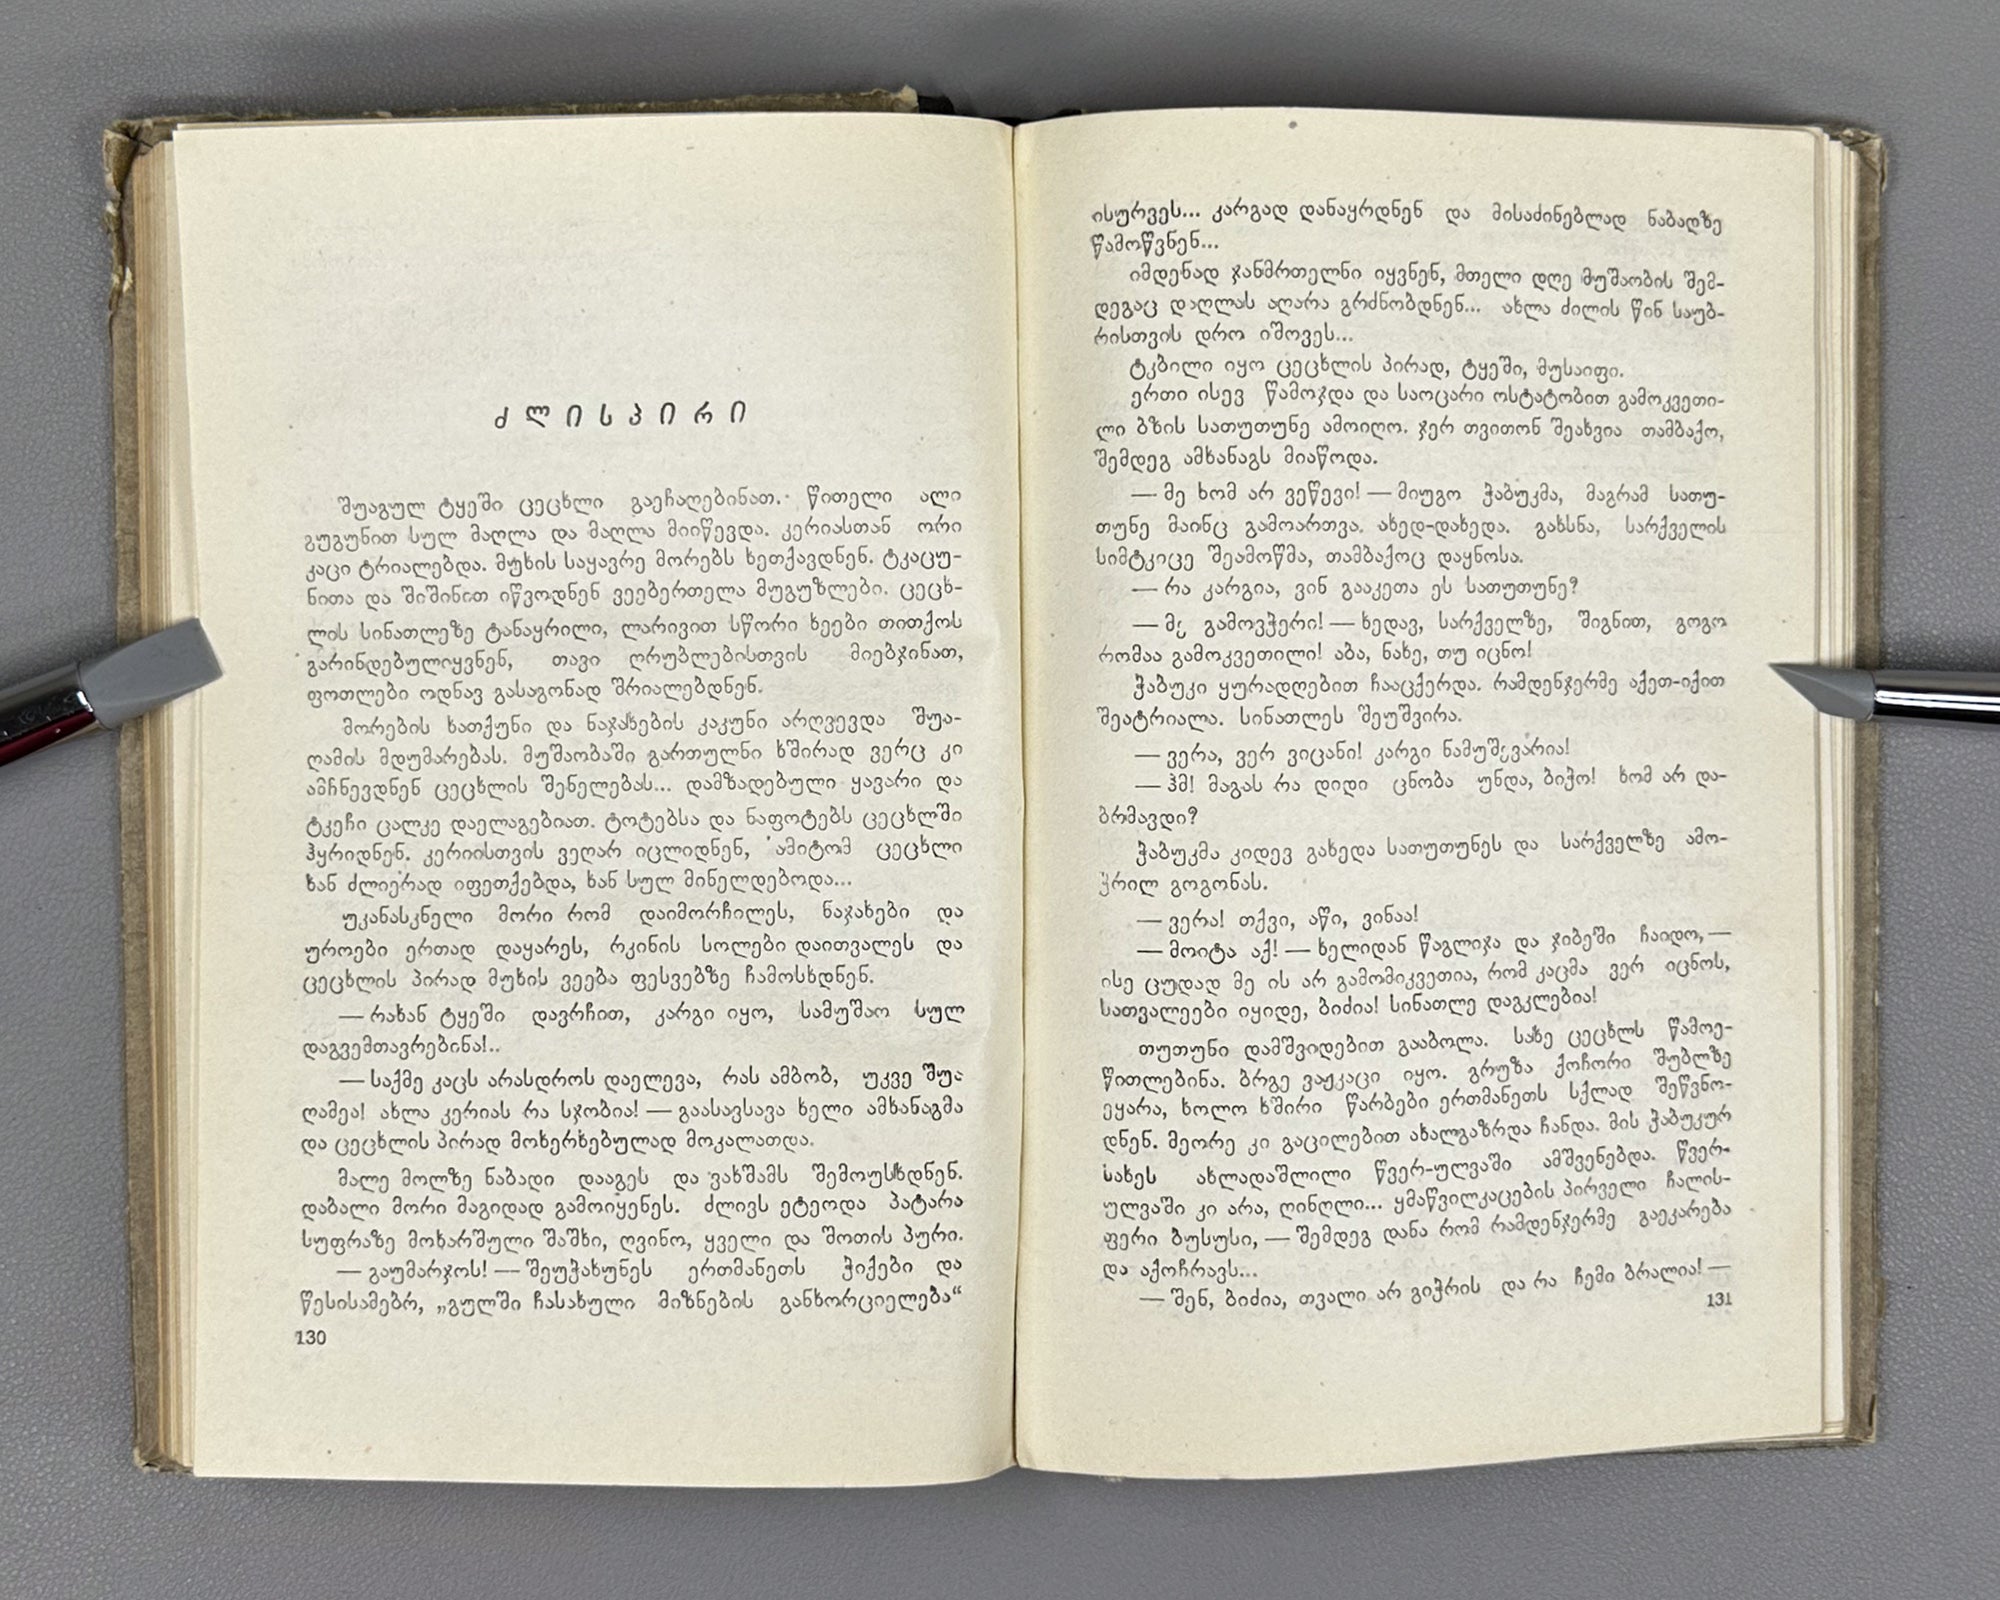 ძლისპირი
შუაგულ ტყეში ცეცხლი გაეჩაღებინათ. წითელი ალი
გუგუნით სულ მაღლა და მაღლა მიიწევდა. კერიასთან ორი
კაცი ტრიალებდა. მუხის საყავრე მორებს ხეთქავდნენ. ტკაცუ-
ნითა და შიშინით იწვოდნენ ვეებერთელა მუგუზლები. ცეცხ-
ლის სინათლეზე ტანაყრილი, ლარივით სწორი ხეები თითქოს
გარინდებულიყვნენ, თავი ღრუბლებისთვის მიებჯინათ,
ფოთლები ოდნავ გასაგონად შრიალებდნენ.
მორების ხათქუნი და ნაჯახების კაკუნი არღვევდა შუა-
ღამის მდუმარებას. მუშაობაში გართულნი ხშირად ვერც კი
ამჩნევდნენ ცეცხლის შენელებას... დამზადებული ყავარი და
ტკეჩი ცალკე დაელაგებიათ. ტოტებსა და ნაფოტებს ცეცხლში
ჰყრიდნენ. კერიისთვის ვეღარ იცლიდნენ, ამიტომ ცეცხლი
ხან ძლიერად იფეთქებდა, ხან სულ მინელდებოდა...
უკანასკნელი მორი რომ დაიმორჩილეს, ნაჯახები და
უროები ერთად დაყარეს, რკინის სოლები დაითვალეს და
ცეცხლის პირად მუხის ვეება ფესვებზე ჩამოსხდნენ.
— რახან ტყეში დავრჩით, კარგი იყო, სამუშაო სულ
დაგვემთავრებინა!..
— საქმე კაცს არასდროს დაელევა, რას ამბობ, უკვე შუა-
ღამეა! ახლა კერიას რა სჯობია! — გაასავსავა ხელი ამხანაგმა
და ცეცხლის პირად მოხერხებულად მოკალათდა.
მალე მოლზე ნაბადი დააგეს და ვახშამს შემოუსხდნენ.
დაბალი მორი მაგიდად გამოიყენეს. ძლივს ეტეოდა პატარა
სუფრაზე მოხარშული შაშხი, ღვინო, ყველი და შოთის პური.
— გაუმარჯოს! — შეუჭახუნეს ერთმანეთს ჭიქები და
წესისამებრ, „გულში ჩასახული მიზნების განხორციელება“
130
ისურვეს... კარგად დანაყრდნენ და მისაძინებლად ნაბადზე
წამოწვნენ...
იმდენად ჯანმრთელნი იყვნენ, მთელი დღე მუშაობის შემ-
დეგაც დაღლას აღარა გრძნობდნენ... ახლა ძილის წინ საუბ-
რისთვის დრო იშოვეს...
ტკბილი იყო ცეცხლის პირად, ტყეში, მუსაიფი.
ერთი ისევ წამოჯდა და საოცარი ოსტატობით გამოკვეთი-
ლი ბზის სათუთუნე ამოიღო. ჯერ თვითონ შეახვია თამბაქო,
შემდეგ ამხანაგს მიაწოდა.
— მე ხომ არ ვეწევი! — მიუგო ჭაბუკმა, მაგრამ სათუ-
თუნე მაინც გამოართვა. ახედ-დახედა. გახსნა, სარქველის
სიმტკიცე შეამოწმა, თამბაქოც დაყნოსა.
— რა კარგია, ვინ გააკეთა ეს სათუთუნე?
— მე გამოვჭერი! — ხედავ, სარქველზე, შიგნით, გოგო
რომაა გამოკვეთილი! აბა, ნახე, თუ იცნო!
ჭაბუკი ყურადღებით ჩააცქერდა. რამდენჯერმე აქეთ-იქით
შეატრიალა. სინათლეს შეუშვირა.
— ვერა, ვერ ვიცანი! კარგი ნამუშევარია!
— ჰმ! მაგას რა დიდი ცნობა უნდა, ბიჭო! ხომ არ და-
ბრმავდი?
ჭაბუკმა კიდევ გახედა სათუთუნეს და სარქველზე ამო-
ჭრილ გოგონას.
— ვერა! თქვი, აწი, ვინაა!
— მოიტა აქ! — ხელიდან წაგლიჯა და ჯიბეში ჩაიდო, —
ისე ცუდად მე ის არ გამომიკვეთია, რომ კაცმა ვერ იცნოს,
სათვალეები იყიდე, ბიძია! სინათლე დაგკლებია!
თუთუნი დამშვიდებით გააბოლა. სახე ცეცხლს წამოე-
წითლებინა. ბრგე ვაჟკაცი იყო. გრუზა ქოჩორი შუბლზე
ეყარა, ხოლო ხშირი წარბები ერთმანეთს სქლად შეწვნო-
დნენ. მეორე კი გაცილებით ახალგაზრდა ჩანდა. მის ჭაბუკურ
სახეს ახლადაშლილი წვერ-ულვაში ამშვენებდა. წვერ-
ულვაში კი არა, ღინღლი... ყმაწვილკაცების პირველი ჩალის-
ფერი ბუსუსი, — შემდეგ დანა რომ რამდენჯერმე გაეკარება
და აქოჩრავს...
— შენ, ბიძია, თვალი არ გიჭრის და რა ჩემი ბრალია! —
131